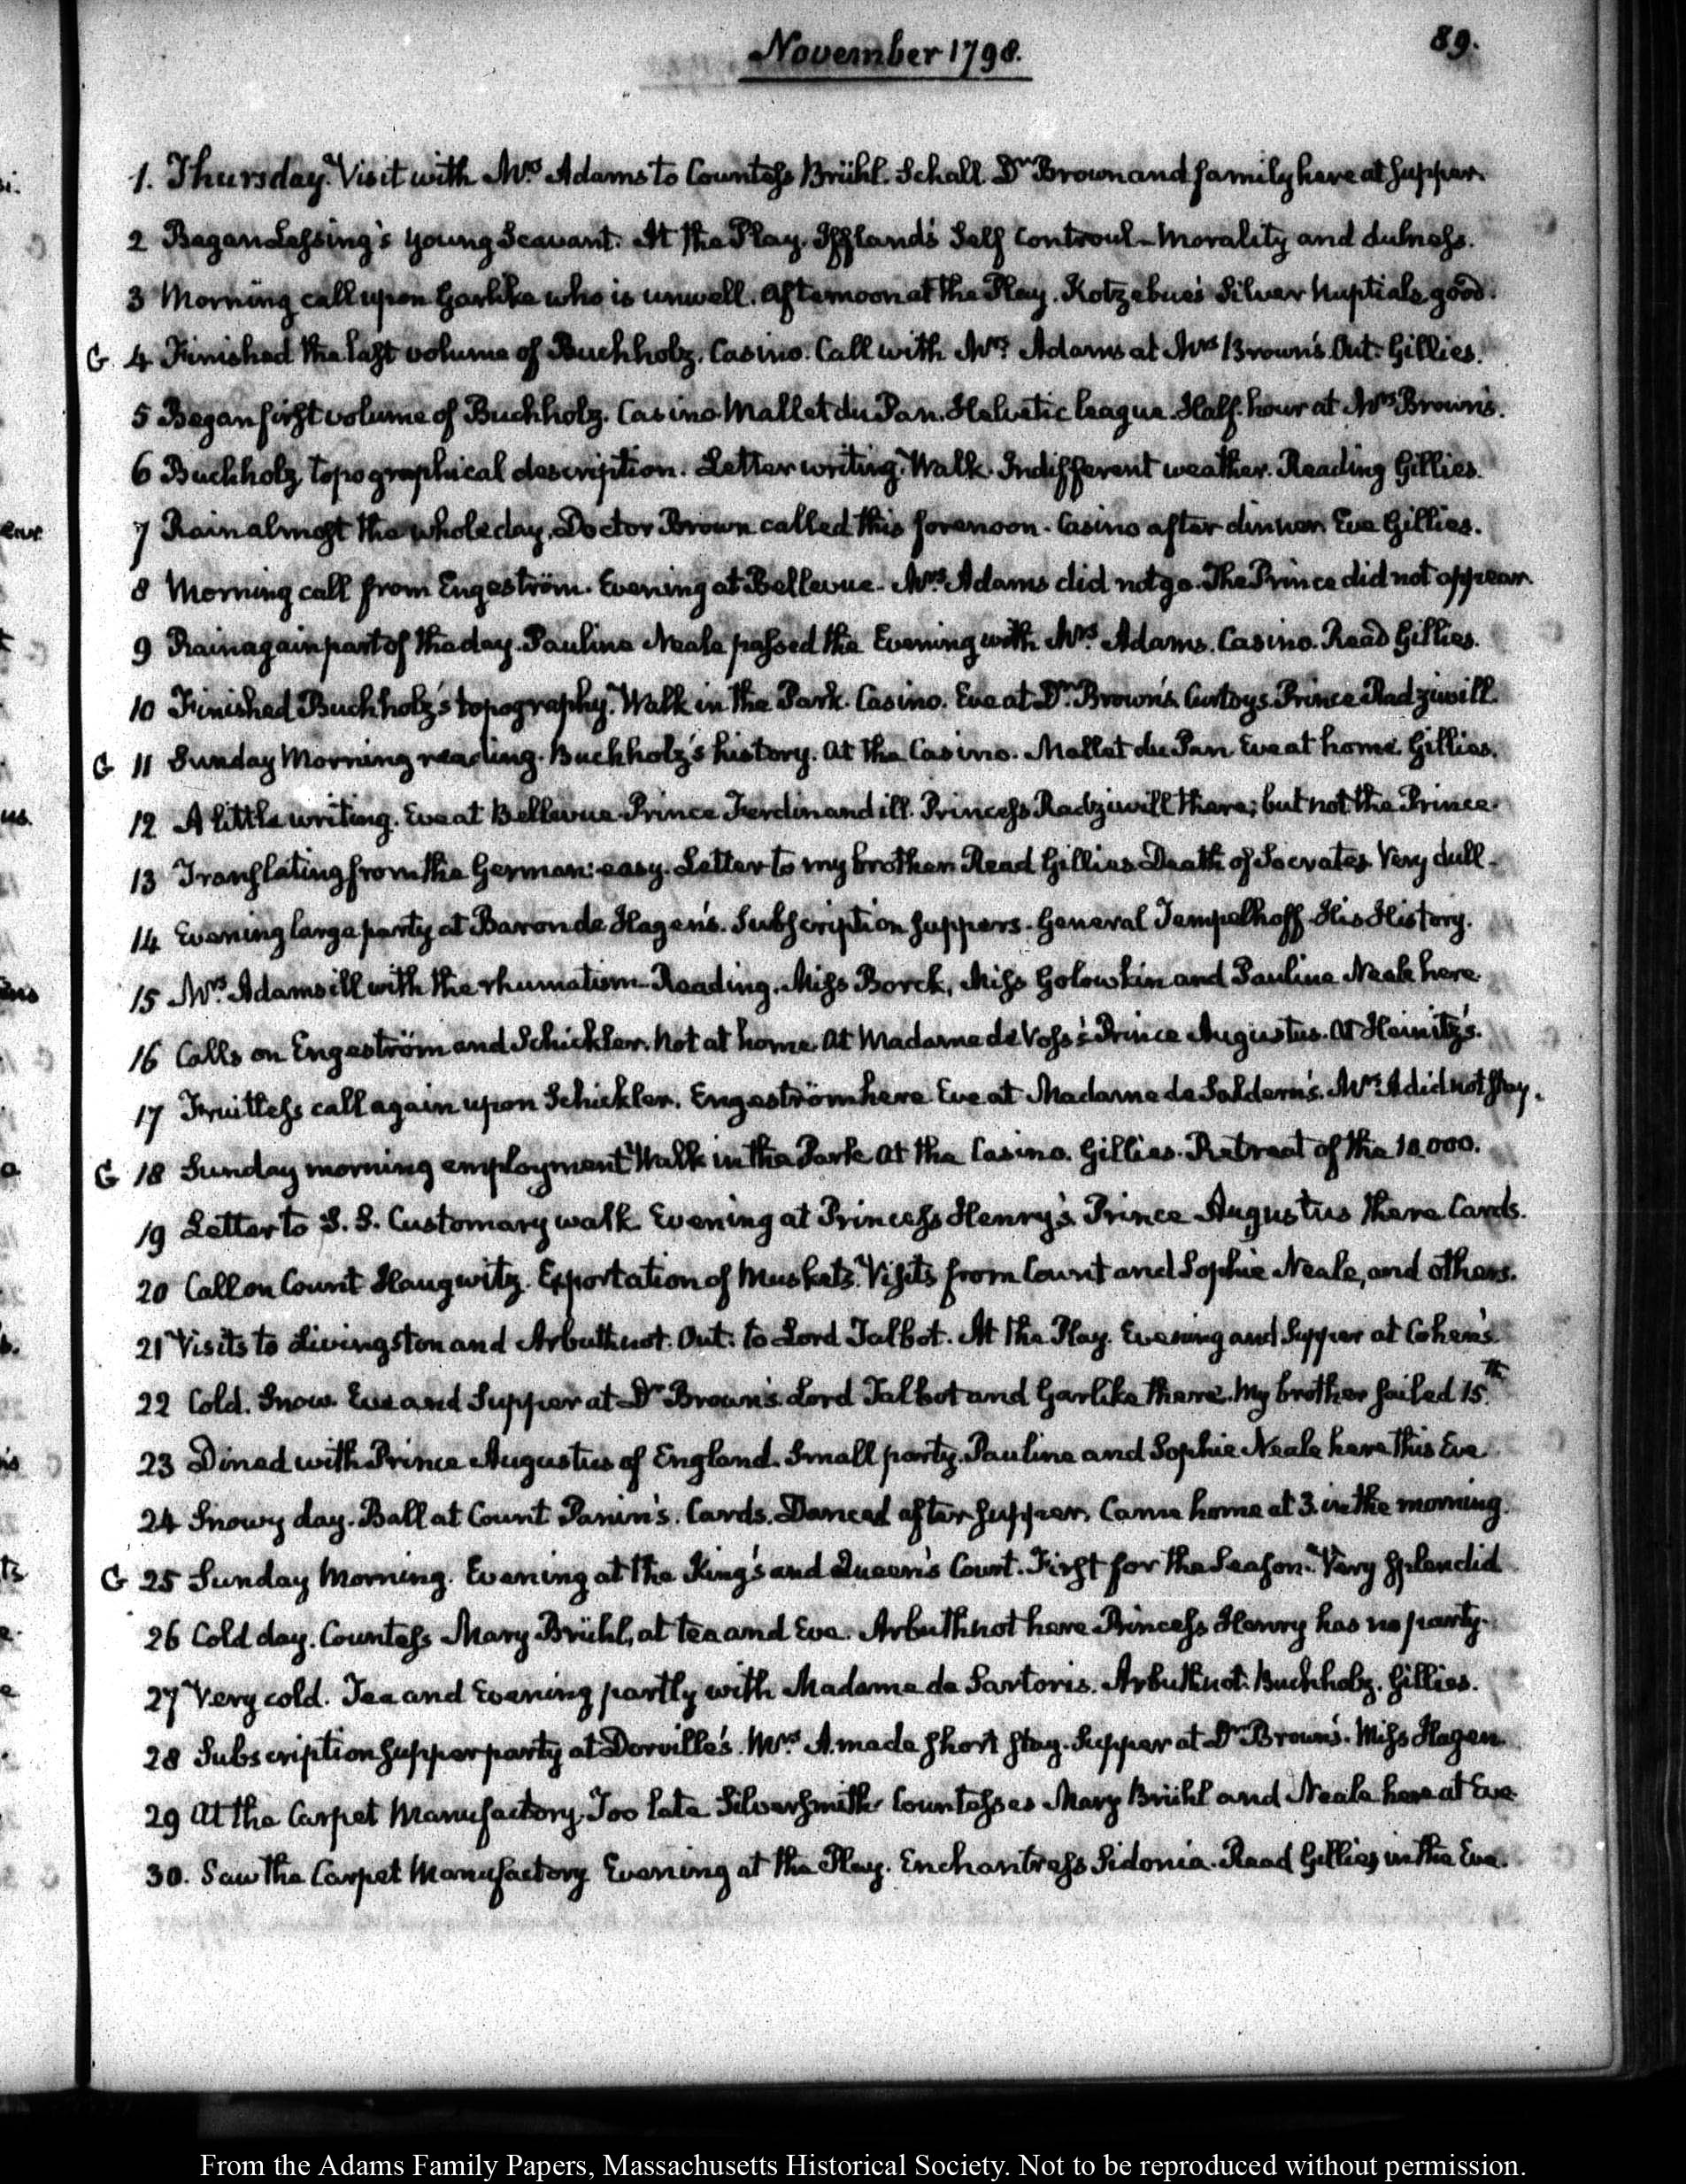 November 1798.
89.
1. Thursday. Visit with Mrs. Adams to Countess Brühl. Schall. Dr. Brown and family here at supper.
2 Began Lessing's young Scavant. At the Play. Iffland's Self Controul - Morality and dulness.
3 Morning call upon Garlike who is unwell. Afternoon at the Play. Kotzebue's Silver Nuptials good.
G. 4 Finished the last volume of Buchholz. Casino. Call with Mrs. Adams at Mrs Brown's. Out. Gillies.
5 Began first volume of Buchholz. Casino. Mallet du Pan. Helvetic league. Half hour at Mrs Brown's.
6 Buchholz topographical description. Letter writing. Walk. Indifferent weather. Reading Gillies.
7 Rain almost the whole day. Doctor Brown called this forenoon. Casino after dinner. Eve Gillies.
8 Morning call from Engeström. Evening at Bellevue. Mrs. Adams did not go. The Prince did not appear.
9 Rain again part of the day. Pauline Neale passed the Evening with Mrs. Adams. Casino. Read Gillies.
10 Finished Buchholz's topography. Walk in the Park. Casino. Eve at Dr. Brown's. Curtoys. Prince Radziwill.
G 11 Sunday Morning reading. Buchholz's history. At the Casino. Mallet du Pan. Eve at home. Gillies.
12 A little writing. Eve at Bellevue. Prince Ferdinand ill. Princess Radziwill there; but not the Prince.
13 Translating from the German: easy. Letter to my brother. Read Gillies. Death of Socrates. Very dull.
14 Evening large party at Baron de Hagen's. Subscription suppers. General Tempelhoff. His History.
15 Mrs. Adams ill with the rhumatism. Reading. Miss Borck, Miss Golowkin and Pauline Neale here.
16 Calls on Engeström and Schickler. Not at home. At Madame de Voss's. Prince Augustus. At Heinitz's.
17 Fruitless call again upon Schickler. Engeström here. Eve at Madame de Saldern's. Mrs. A did not stay.
G 18 Sunday morning employment. Walk in the Park. At the Casino. Gillies. Retreat of the 10,000.
19 Letter to S. S. Customary walk. Evening at Princess Henry's. Prince Augustus there. Cards.
20 Call on Count Haugwitz. Exportation of Muskets. Visits from Count and Sophie Neale, and others.
21 Visits to Livingston and Arbuthnot. Out. to Lord Talbot. At the Play. Evening and Supper at Cohen's.
22 Cold. Snow. Eve and Supper at Dr Brown's. Lord Talbot and Garlike there. My brother sailed 15th.
23 Dined with Prince Augustus of England. Small party. Pauline and Sophie Neale here this Eve.
24 Snowy day. Ball at Count Panin's. Cards. Danced after supper. Came home at 3. in the morning.
G 25 Sunday Morning. Evening at the King's and Queen's Court. First for the Season. Very splendid
26 Cold day. Countess Mary Brühl, at tea and Eve. Arbuthnot here. Princess Henry has no party.
27 Very cold. Tea and Evening partly with Madame de Sartoris. Arbuthnot. Buchholz. Gillies.
28 Subscription supper party at Dorville's. Mrs. A. made short stay. Supper at Dr. Brown's. Miss Hagen.
29 At the Carpet Manufactory. Too late. Silversmith. Countesses Mary Brühl and Neale here at Eve.
30. Saw the Carpet Manufactory. Evening at the Play. Enchantress Sidonia. Read Gillies in the Eve.
From the Adams Family Papers, Massachusetts Historical Society. Not to be reproduced without permission.